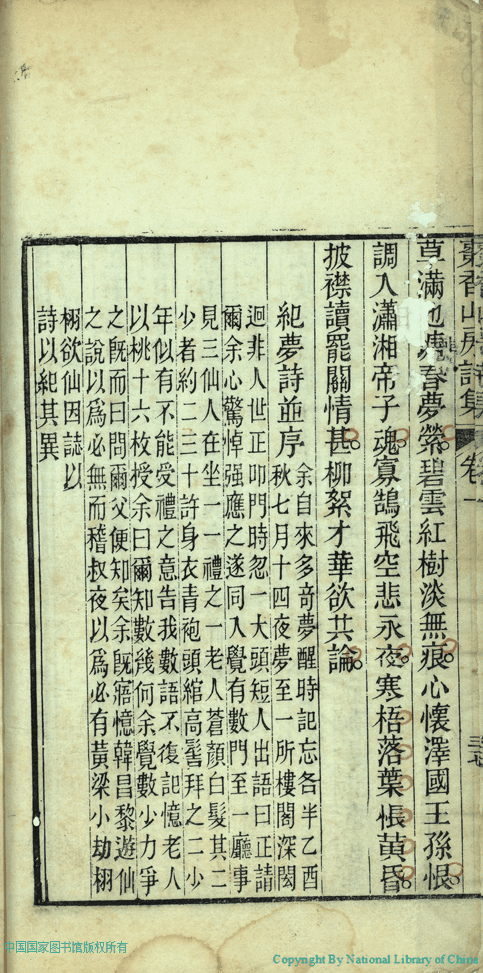 香山房詩集 卷一
草滿池塘春夢縈碧雲紅樹淡無痕心懷澤國王孫恨
調入瀟湘帝子魂寡鵠飛空悲永夜寒梧落葉悵黃昏
披襟讀罷關情甚柳絮才華欲共論
紀夢詩並序
余自來多奇夢醒時記忘各半乙酉
秋七月十四夜夢至一所樓閣深閎
迥非人世正叩門時忽一大頭短人出語曰正請
爾余心驚悼强應之遂同入覺有數門至一廳事
見三仙人在坐一一禮之一老人蒼顏白髮其二
少者約二三十許身衣青袍頭綰高髻拜之二少
年似有不能受禮之意告我數語不復記憶老人
以桃十六枚授余曰爾知數幾何余覺數少力爭
之旣而曰問爾父便知矣余旣寤憶韓昌黎遊仙
之說以爲必無而稽叔夜以爲必有黃梁小劫栩
栩欲仙因誌以
詩以紀其異
中国国家图书馆版权所有
Copyright By National Library of China